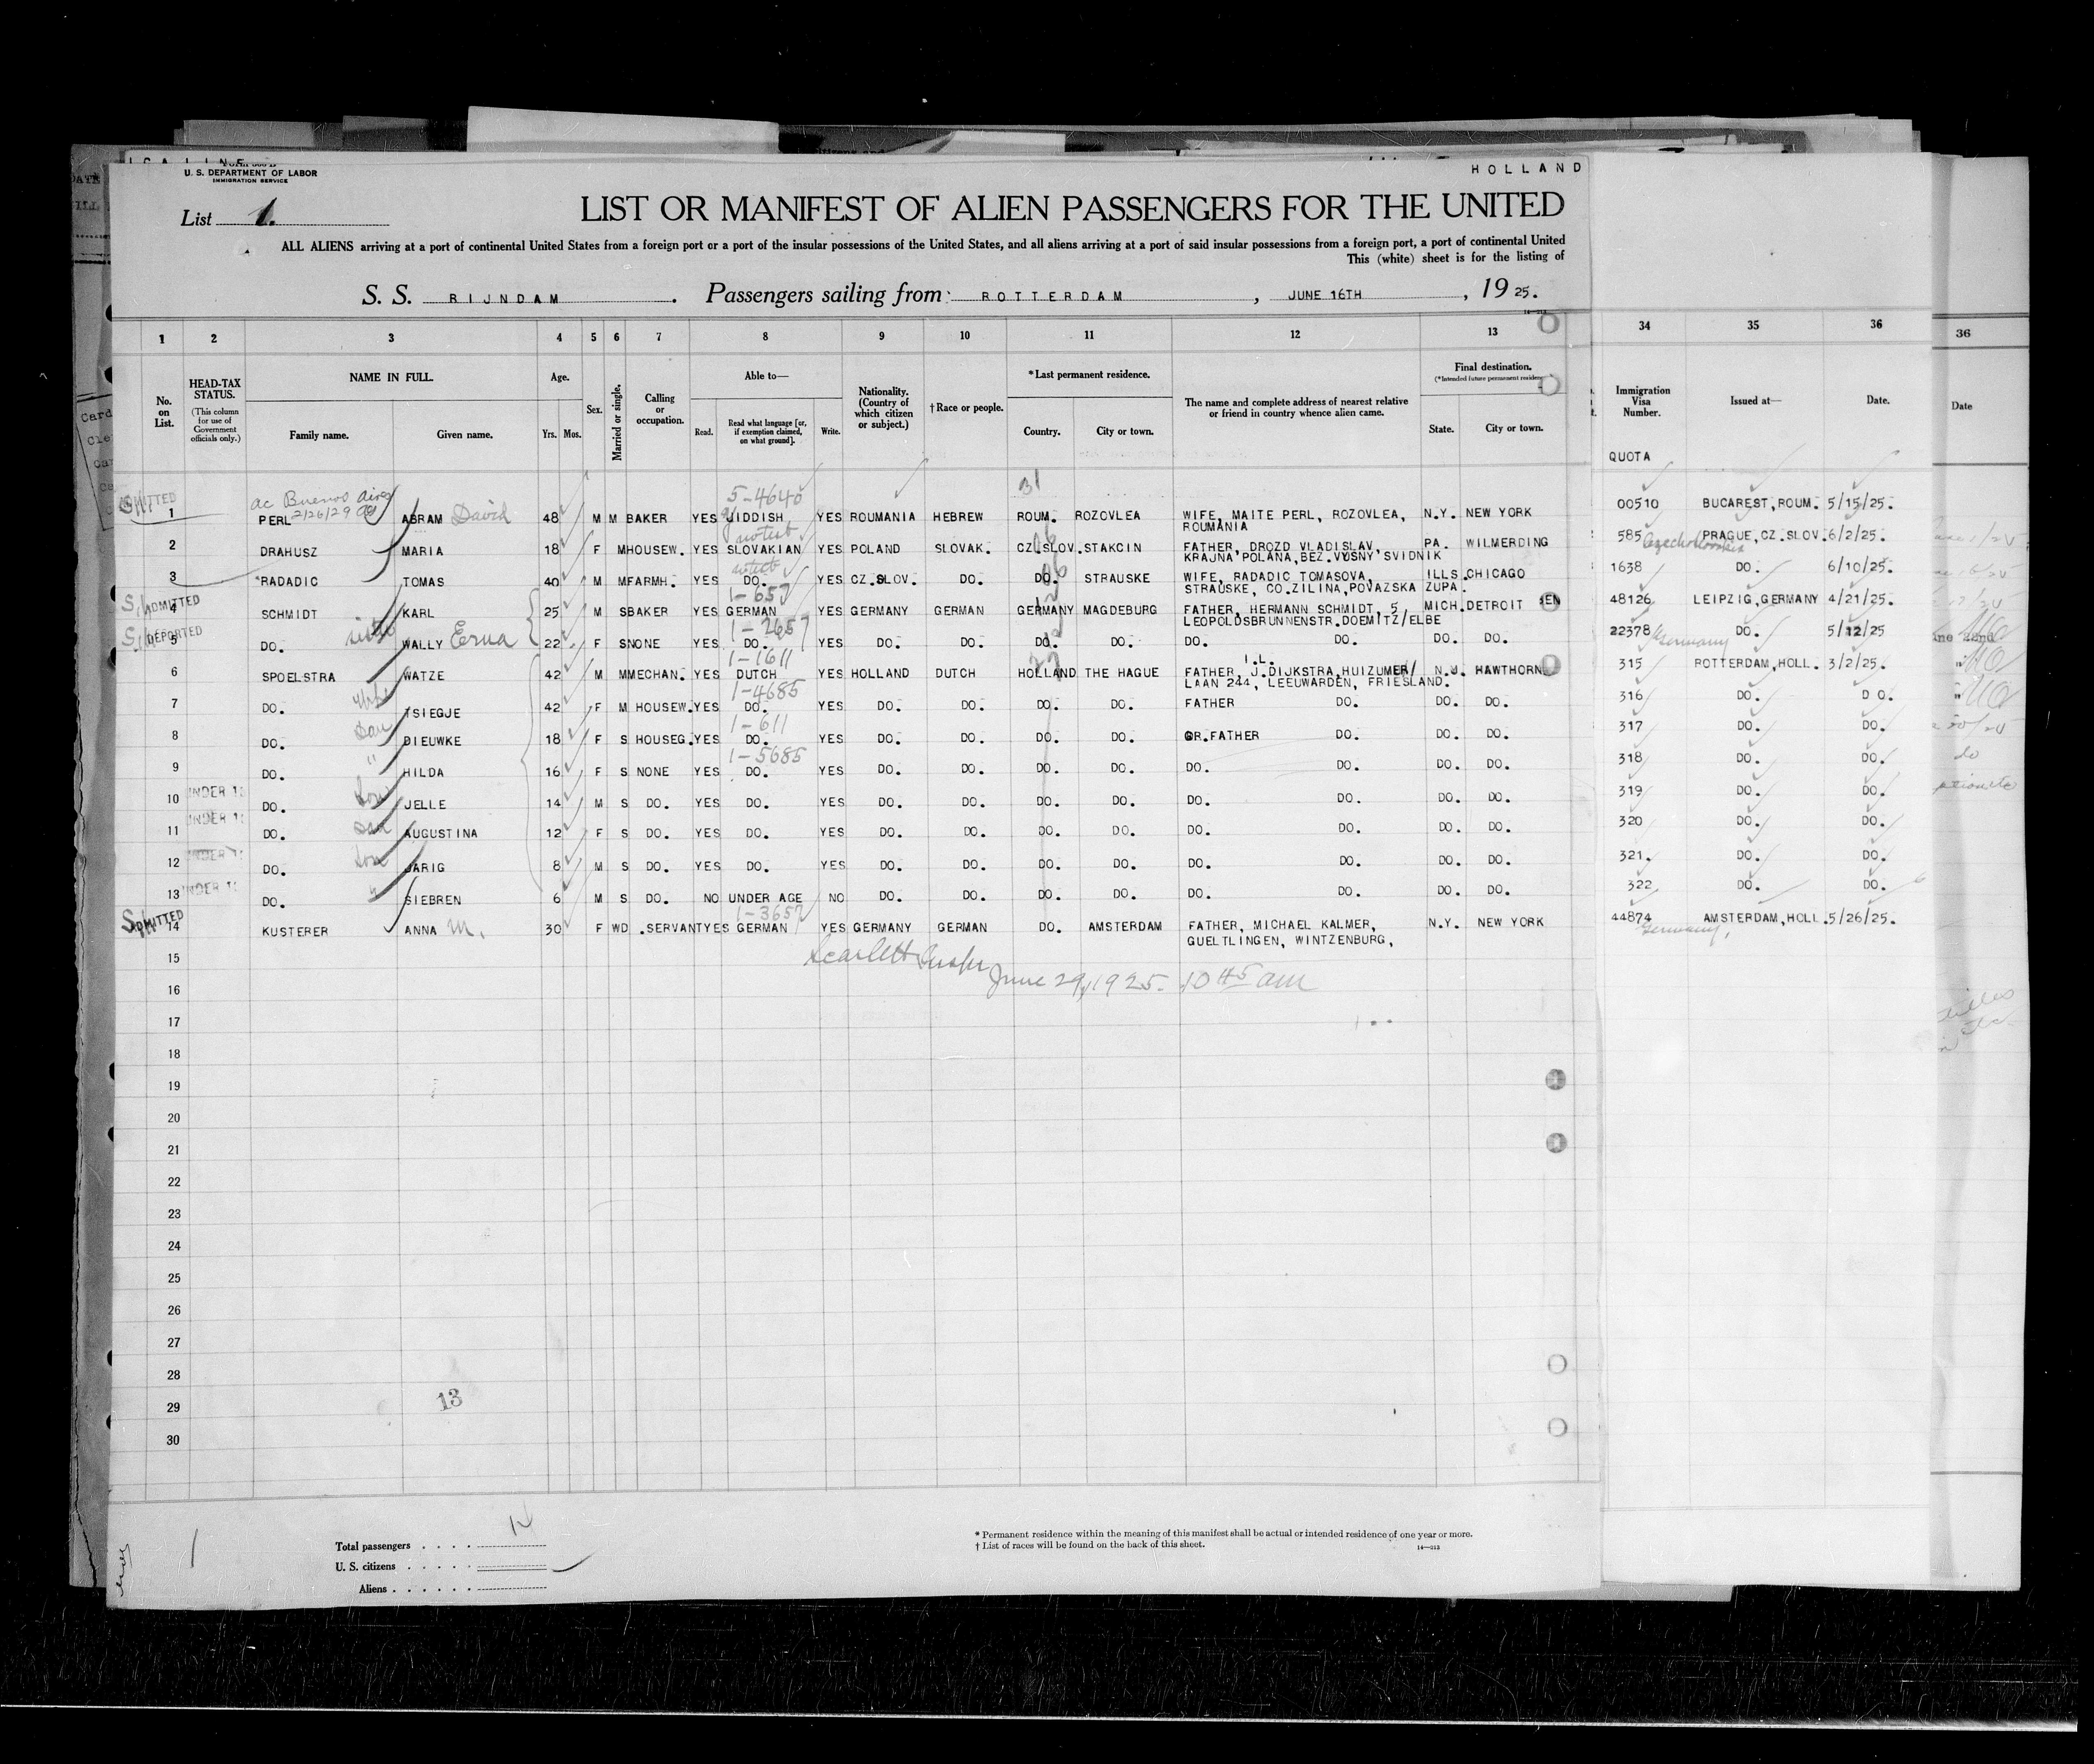 U. S. DEPARTMENT OF LABOR
IMMIGRATION SERVICE
HOLLAND
List 1.
LIST OR MANIFEST OF ALIEN PASSENGERS FOR THE UNITED
ALL ALIENS arriving at a port of continental United States from a foreign port or a port of the insular possessions of the United States, and all aliens arriving at a port of said insular possessions from a foreign port, a port of continental United
This (white) sheet is for the listing of
S. S. RIJNDAM. Passengers sailing from ROTTERDAM, JUNE 16TH, 1925.
1 2 3 4 5 6 7 8 9 10 11 12 13 34 35 36 36
No. on List.
HEAD-TAX STATUS.
(This column for use of Government officials only.)
NAME IN FULL.
Family name. Given name.
Age.
Yrs. Mos.
Sex.
Married or single.
Calling or occupation.
Able to—
Read. Read what language [or, if exemption claimed, on what ground]. Write.
Nationality. (Country of which citizen or subject.)
†Race or people.
*Last permanent residence.
Country. City or town.
The name and complete address of nearest relative or friend in country whence alien came.
Final destination.
(*Intended future permanent residence
State. City or town.
Immigration Visa Number.
Issued at—
Date.
Date
QUOTA
ac Buenos Aires 5-4640 31
2/26/29
ADMITTED 1 PERL ABRAM David 48 M M BAKER YES JIDDISH YES ROUMANIA HEBREW ROUM. ROZOVLEA WIFE, MAITE PERL, ROZOVLEA, N.Y. NEW YORK 00510 BUCAREST, ROUM. 5/15/25.
ROUMANIA
2 DRAHUSZ MARIA 18 F M HOUSEW. YES SLOVAKIAN YES POLAND SLOVAK. CZ.SLOV. STAKCIN FATHER, DROZD VLADISLAV, PA. WILMERDING 585 PRAGUE, CZ.SLOV. 6/2/25.
KRAJNA POLANA, BEZ.VYSNY SVIDNIK
3 RADADIC TOMAS 40 M M FARMH. YES DO. YES CZ.SLOV. DO. DO. STRAUSKE WIFE, RADADIC TOMASOVA, ILLS. CHICAGO 1638 DO. 6/10/25.
STRAUSKE, CO.ZILINA, POVAZSKA ZUPA.
1-657
ADMITTED 4 SCHMIDT KARL 25 M S BAKER YES GERMAN YES GERMANY GERMAN GERMANY MAGDEBURG FATHER, HERMANN SCHMIDT, 5, MICH. DETROIT 48126 LEIPZIG, GERMANY 4/21/25.
LEOPOLDSBRUNNENSTR. DOEMITZ/ELBE
1-2657
DEPORTED 5 DO. sister WALLY Erna 22 F S NONE YES DO. YES DO. DO. DO. DO. DO. DO. DO. DO. 22378 Germany DO. 5/12/25
1-1611
6 SPOELSTRA WATZE 42 M M MECHAN. YES DUTCH YES HOLLAND DUTCH HOLLAND THE HAGUE FATHER, J.DIJKSTRA, HUIZUMER/ N.J. HAWTHORN 315 ROTTERDAM, HOLL. 3/2/25.
LAAN 244, LEEUWARDEN, FRIESLAND.
1-4685
7 DO. wife TSIEGJE 42 F M HOUSEW. YES DO. YES DO. DO. DO. DO. FATHER DO. DO. DO. 316 DO. DO.
1-611
8 DO. dau DIEUWKE 18 F S HOUSEG. YES DO. YES DO. DO. DO. DO. GR.FATHER DO. DO. DO. 317 DO. DO.
1-5685
9 DO. " HILDA 16 F S NONE YES DO. YES DO. DO. DO. DO. DO. DO. DO. DO. 318 DO. DO.
10 DO. son JELLE 14 M S DO. YES DO. YES DO. DO. DO. DO. DO. DO. DO. DO. 319 DO. DO.
11 DO. dau AUGUSTINA 12 F S DO. YES DO. YES DO. DO. DO. DO. DO. DO. DO. DO. 320 DO. DO.
12 DO. son JARIG 8 M S DO. YES DO. YES DO. DO. DO. DO. DO. DO. DO. DO. 321. DO. DO.
13 DO. " SIEBREN 6 M S DO. NO UNDER AGE NO DO. DO. DO. DO. DO. DO. DO. DO. 322 DO. DO.
1-3657
ADMITTED 14 KUSTERER ANNA M. 30 F WD. SERVANT YES GERMAN YES GERMANY GERMAN DO. AMSTERDAM FATHER, MICHAEL KALMER, N.Y. NEW YORK 44874 AMSTERDAM, HOLL. 5/26/25.
GUELTLINGEN, WINTZENBURG, Germany,
15
June 29, 1925. 10 45 am
16
17
18
19
20
21
22
23
24
25
26
27
28
29
30
13
Total passengers
U. S. citizens
Aliens
* Permanent residence within the meaning of this manifest shall be actual or intended residence of one year or more.
† List of races will be found on the back of this sheet.
14—313